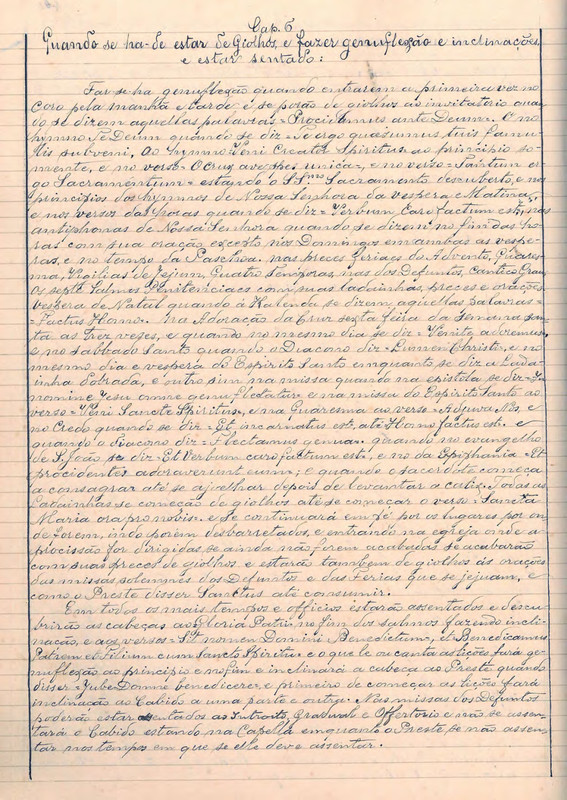 Cap. 6
Quando se ha-de estar de Giolhos, e fazer genuflexão e inclinações,
e estar sentado:
Far-se-ha genuflexão quando entrarem a primeira vez no
Coro pela manhã e tarde e se porão de giolhos ao invitatorio quan-
do se dizem aquellas palavras = Procidamus ante Deum. E no
hymno Te Deum quando se diz = Te ergo quæsumus tuis famu-
lis subveni, Ao hymno = Veni Creator Spiritus = ao principio so-
mente, e no verso = O crux ave spes unica =, e no verso = Tantum er-
go Sacramentum = estando o SSmo Sacramento descuberto, e nos
principios dos hymnos de Nossa Senhora da vespera e Matinas,
e nos versos das horas quando se diz = Verbum Caro factum est, nas
antiphonas de Nossa Senhora quando se dizem no fim das ho-
ras com sua oração excepto nos Domingos em ambas as vespe-
ras, e no tempo da Paschoa. nas preces feriaes do Advento, Quares-
ma, Vigilias de jejum, Quatro temporas, nas dos Defuntos, Cantico Grau,
os septe Salmos Penitenciaes com suas ladainhas, preces e orações,
vespera de Natal quando á Kalenda se dizem aquellas palavras =
= Factus Homo. Na Adoração da Cruz sexta feira da Semana San-
ta as trez vezes, e quando no mesmo dia se diz = Venite adoremus,
e no sabbado Santo quando o Diacono diz = Lumen Christi =, e no
mesmo dia e vespera do Espirito Santo emquanto se diz a Lada-
inha dobrada, e outro sim na missa quando na epistola se diz = In
nomine Jesu omne genu flectatur = e na missa do Espirito Santo ao
verso = Veni Sancte Spiritus =, e na Quaresma ao verso = Adjuva Nos, e
no Credo quando se diz = Et incarnatus est, até Homo factus est. e
quando o Diacono diz = Flectamus genua. quando no evangelho
de S. João se diz = Et Verbum caro factum est, e no da Epiphania = Et
procidentes adoraverunt eum; e quando o sacerdote começa
a consagrar até se ajoelhar depois de levantar a calix. Todas as
Ladainhas se começão de giolhos até se começar o verso = Sancta
Maria ora pro nobis = e se continuará em pé por os lugares por on-
de forem, indo porem desbarretados, e entrando na egreja onde a
procissão for dirigida se ainda não forem acabadas se acabarão
com suas preces de giolhos e estarão tambem de giolhos ás orações
das missas solemnes dos Defuntos e das Ferias que se jejuam, e
como o Preste disser Sanctus até consumir.
Em todos os mais tempos e officios estarão assentados e descu-
brirão as cabeças ao Gloria Patri no fim dos salmos fazendo incli-
nação, e aos versos = Sit nomen Domini Benedictum =, et Benedicamus
Patrem et Filium cum Sancto Spiritu = e o que le ou canta as lições fará ge-
nuflexão ao principio e no fim e inclinará a cabeça ao Preste quando
disser = Jube Domne benedicere = e primeiro de começar as lições fará
inclinação ao Cabido a uma parte e outra. Nas missas dos Defuntos
poderão estar assentados ao Introito, Gradual e Offertorio e não se assen-
tará o Cabido estando na Capella emquanto o Preste se não assen-
tar nos tempos em que se elle deve assentar.